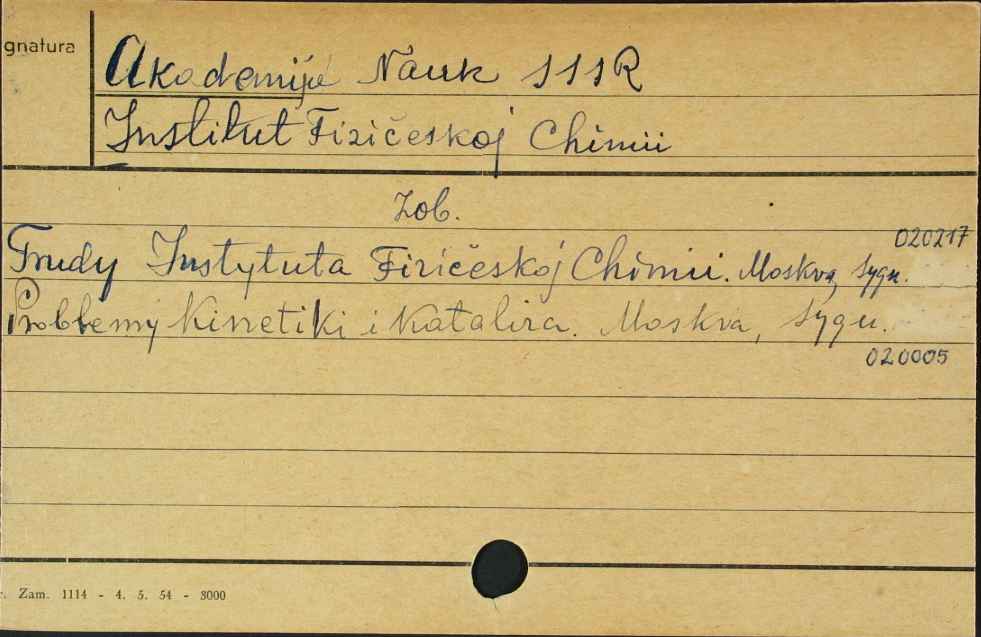 gnatura
Akademija Nauk SSSR
Institut Fizičeskoj Chimii
Zob.
020217
Trudy Instytuta Fizičeskoj Chimii. Moskva, Sygn.
Problemy Kinetiki i Kataliza. Moskva, Sygn.
020005
. Zam. 1114 - 4. 5. 54 - 3000